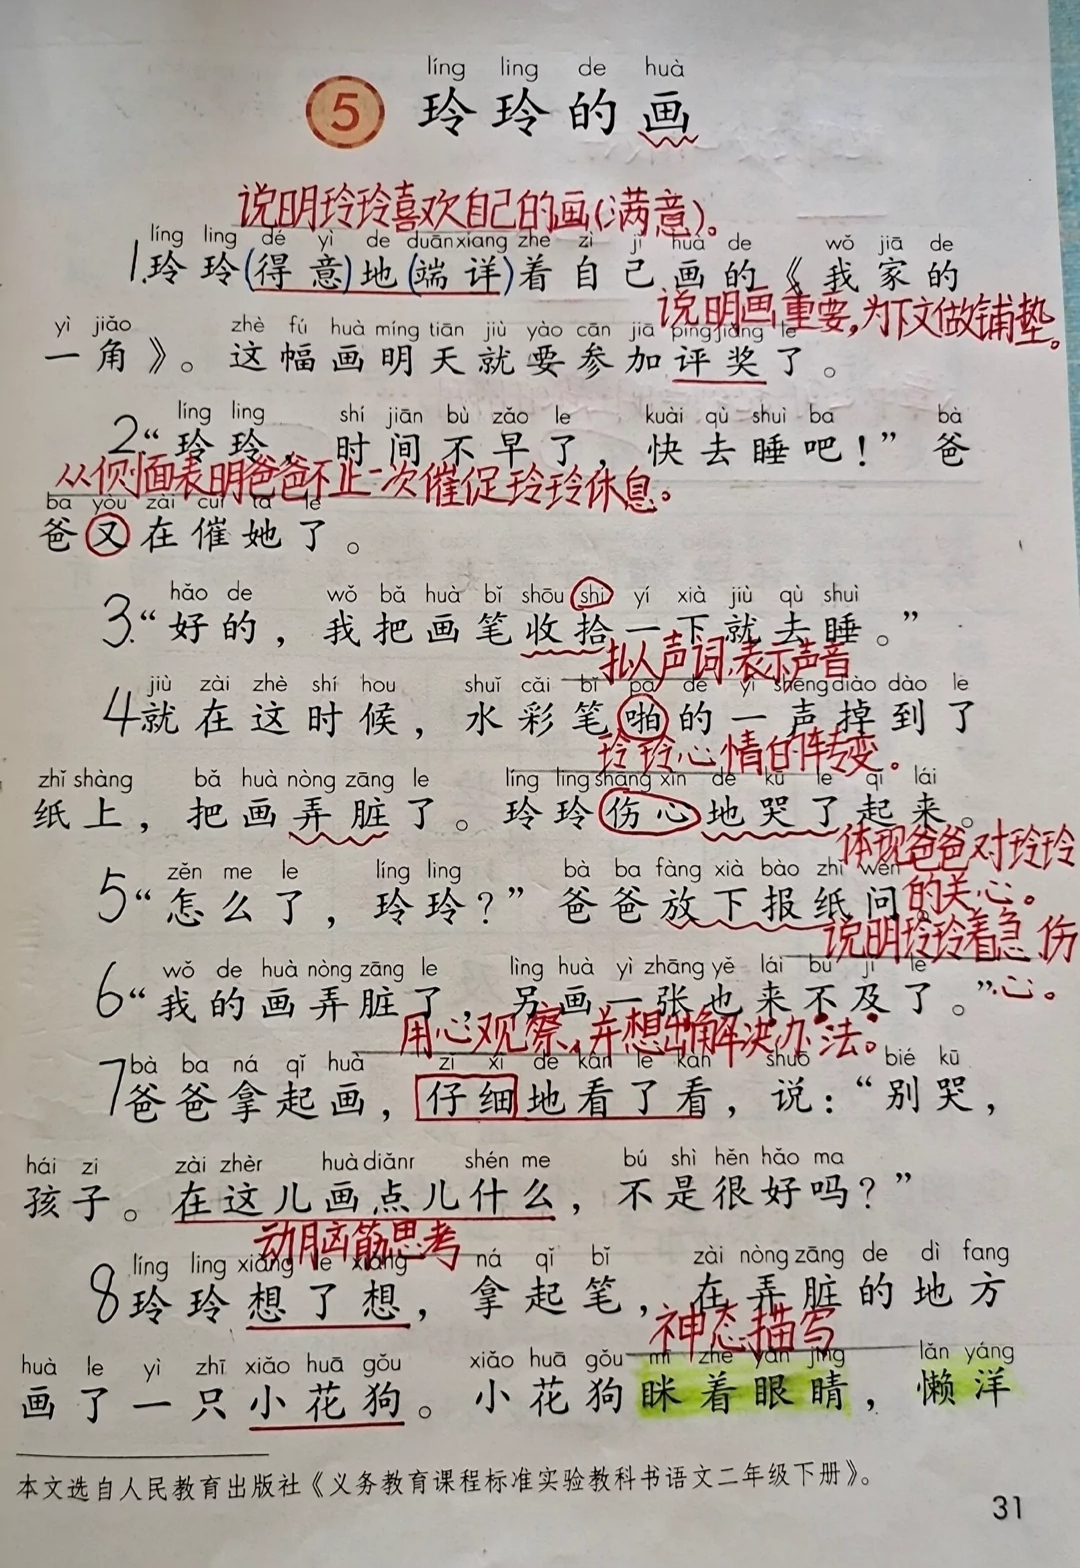 líng ling de huà
5 玲玲的画
说明玲玲喜欢自己的画(满意)。
líng ling dé yì de duān xiang zhe zì jǐ huà de wǒ jiā de
1.玲玲(得意)地(端详)着自己画的《我家的
说明画重要,为下文做铺垫。
yì jiǎo zhè fú huà míng tiān jiù yào cān jiā píng jiǎng le
一角》。这幅画明天就要参加评奖了。
líng ling shí jiān bù zǎo le kuài qù shuì ba bà
2“玲玲,时间不早了,快去睡吧!”爸
从侧面表明爸爸不止一次催促玲玲休息。
ba yòu zài cuī tā le
爸又在催她了。
hǎo de wǒ bǎ huà bǐ shōu shi yí xià jiù qù shuì
3.“好的,我把画笔收拾一下就去睡。”
拟人声词,表示声音
jiù zài zhè shí hou shuǐ cǎi bǐ pā de yì shēng diào dào le
4就在这时候,水彩笔啪的一声掉到了
玲玲心情的转变。
zhǐ shàng bǎ huà nòng zāng le líng ling shāng xīn de kū le qǐ lái
纸上,把画弄脏了。玲玲伤心地哭了起来。
体现爸爸对玲玲
zěn me le líng ling bà ba fàng xià bào zhǐ wèn
的关心。
5“怎么了,玲玲?”爸爸放下报纸问。
说明玲玲着急、伤
wǒ de huà nòng zāng le lìng huà yì zhāng yě lái bu jí le
心。
6“我的画弄脏了,另画一张也来不及了。”
用心观察,并想出解决办法。
bà ba ná qǐ huà zǐ xì de kàn le kàn shuō bié kū
7爸爸拿起画,仔细地看了看,说:“别哭,
hái zi zài zhèr huà diǎnr shén me bú shì hěn hǎo ma
孩子。在这儿画点儿什么,不是很好吗?”
动脑筋思考
líng ling xiǎng le xiǎng ná qǐ bǐ zài nòng zāng de dì fang
8玲玲想了想,拿起笔,在弄脏的地方
神态描写
huà le yì zhī xiǎo huā gǒu xiǎo huā gǒu mī zhe yǎn jīng lǎn yáng
画了一只小花狗。小花狗眯着眼睛,懒洋
本文选自人民教育出版社《义务教育课程标准实验教科书语文二年级下册》。
31